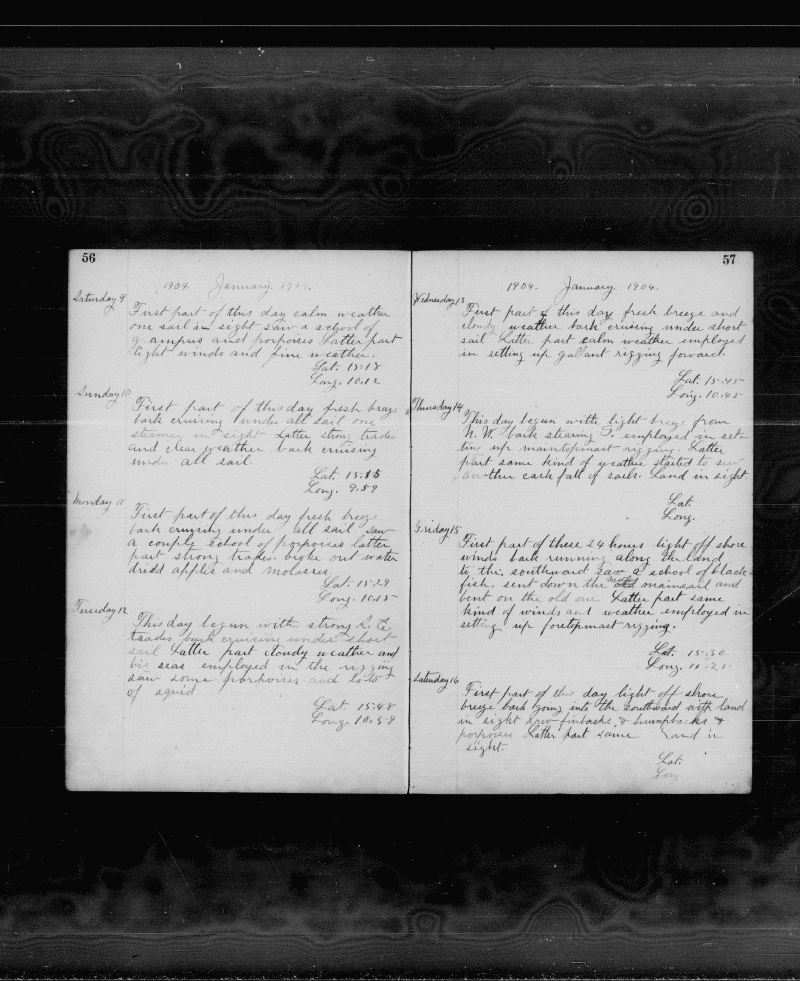 56
1904. January. 1904.
Saturday 9
First part of this day calm weather
one sail in sight saw a school of
grampus and porpoises Latter part
light winds and fine weather.
Lat. 15.18
Long. 10.12
Sunday 10
First part of this day fresh breeze
bark cruising under all sail one
steamer in sight Latter strong trades
and clear weather bark cruising
under all sail.
Lat. 15.15
Long. 9.59
Monday 11
First part of this day fresh breeze
bark cruising under all sail saw
a couple school of porpoises latter
part strong trades. broke out water
dried apples and molasses.
Lat. 15.29
Long. 10.15
Tuesday 12
This day begun with strong S.E.
traades bark cruising under short
sail Latter part cloudy weather and
big seas employed in the rigging
saw some porpoises and lots
of squid
Lat 15.48
Long. 10.59
57
1904. January. 1904.
Wednesday 13
First part of this day fresh breeze and
cloudy weather bark cruising under short
sail Latter part calm weather employed
in setting up gallant rigging forward.
Lat. 15.45
Long. 10.45
Thursday 14
This day begun with light breeze from
N.W. bark stearing employed in set-
ting up maintopmast rigging. Latter
part same kind of weather started to sew
another cask full of sails. Land in sight.
Lat.
Long.
Friday 15
First part of these 24 hours light off shore
winds bark running along the land
to the southward Saw a school of black-
fish. sent down the new mainsail and
bent on the old one Latter part same
kind of winds and weather employed in
setting up foretopmast rigging.
Lat. 15.30
Long. 11.25
Saturday 16
First part of this day light off shore
breeze bark going into the southward with land
in sight saw finbacks, & humpbacks &
porpoises Latter part same Land in
sight.
Lat.
Long